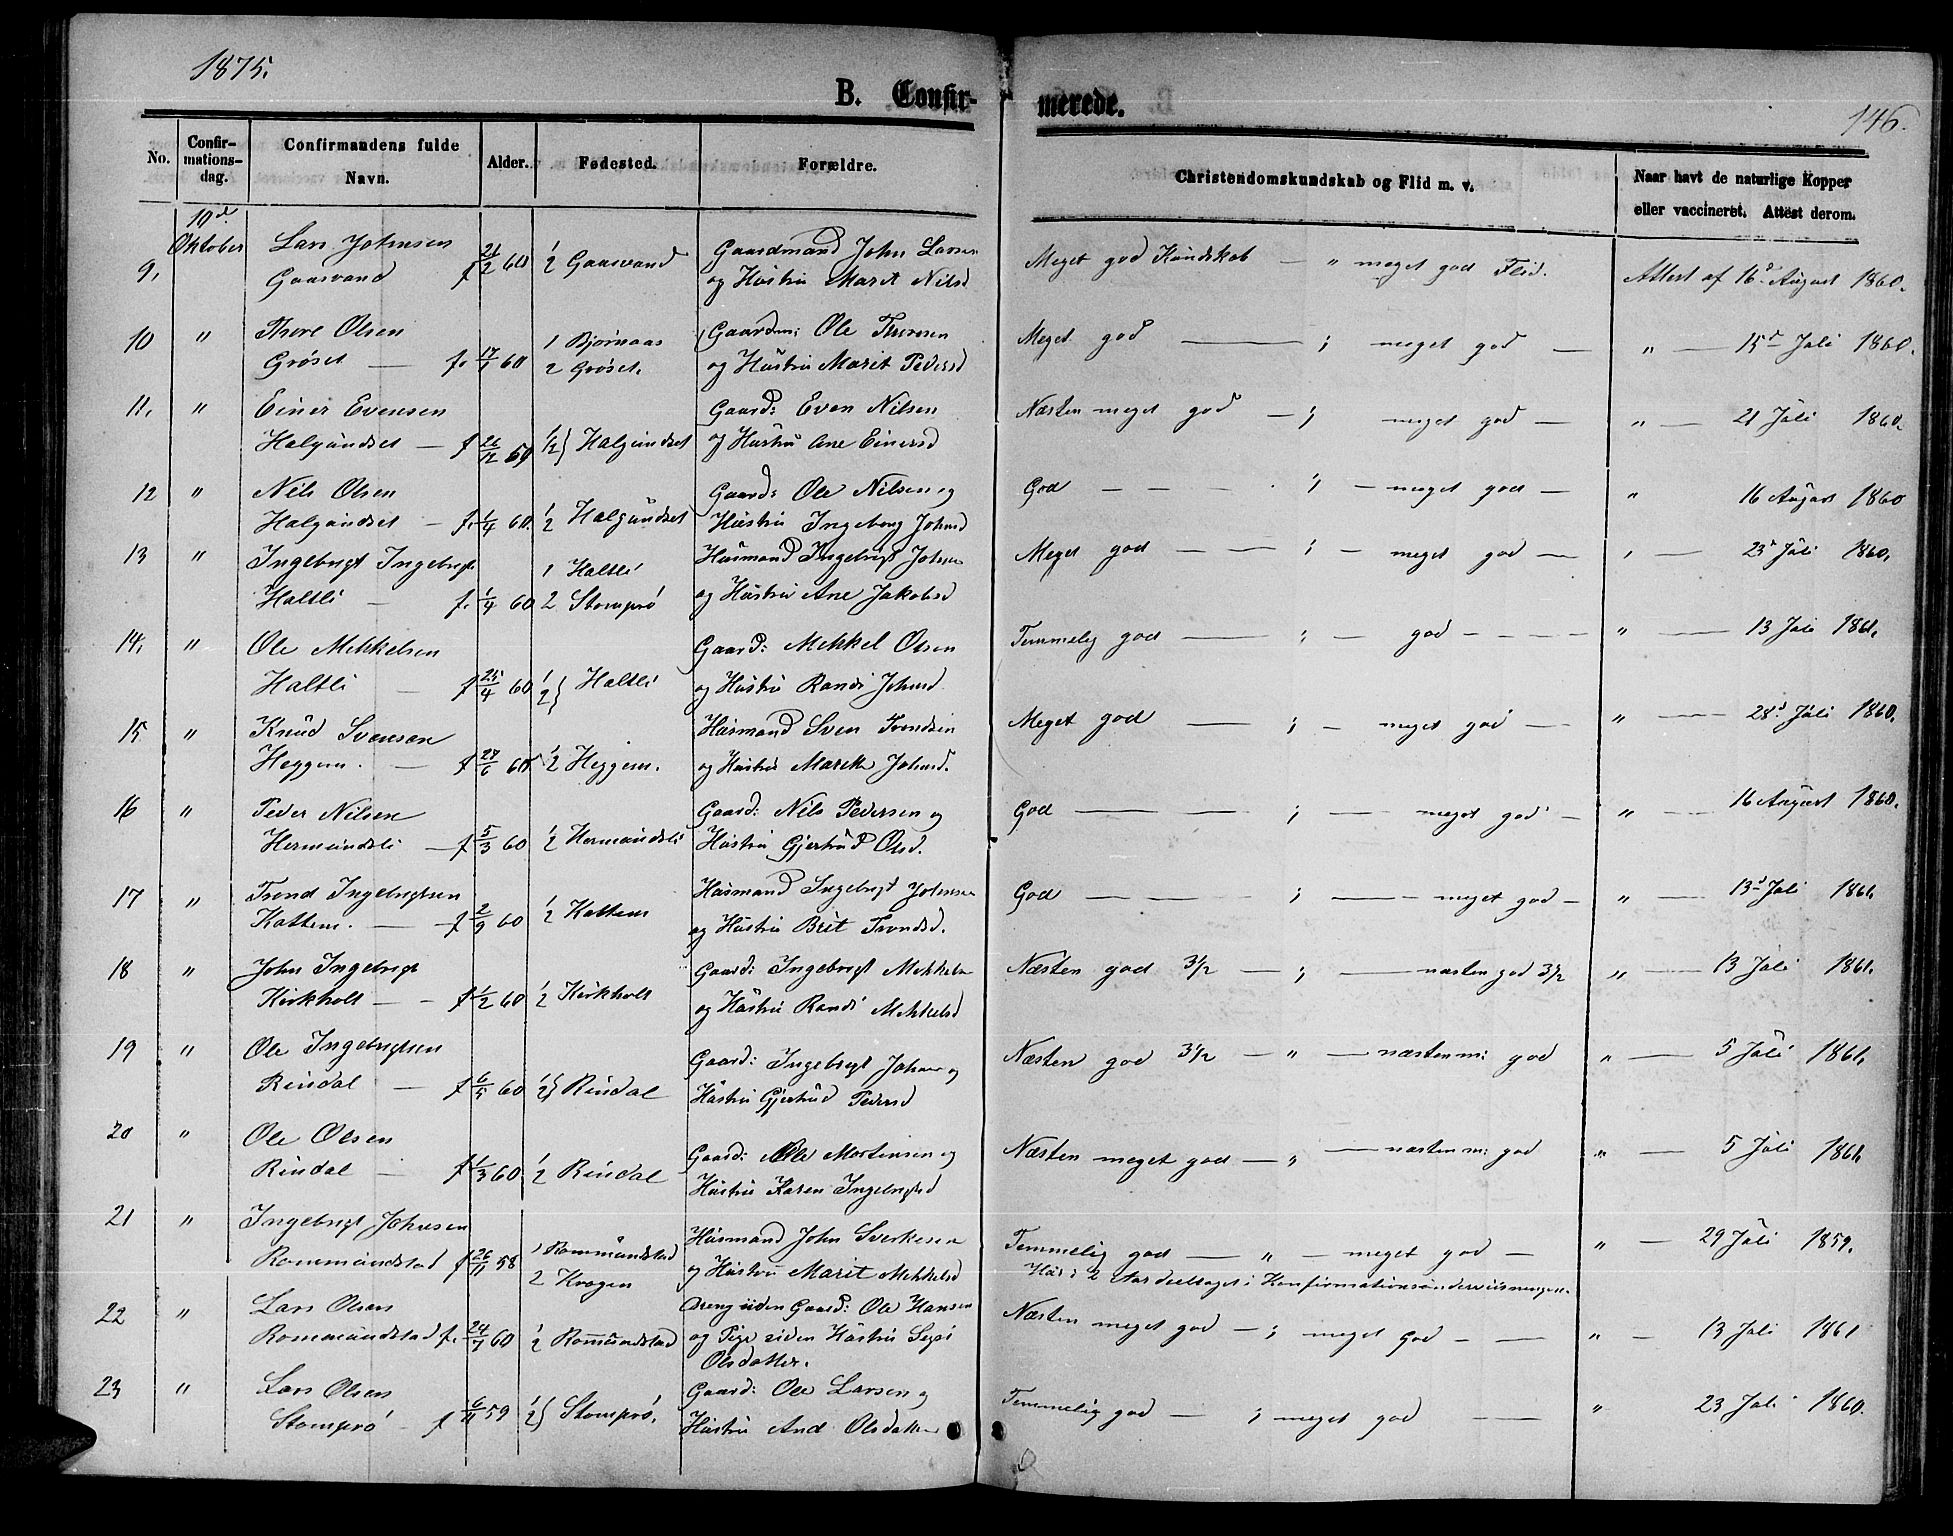 1875.
B. Confir-
merede.
146.
No.
Confir-
mations-
dag.
Confirmandens fulde
Navn.
Alder.
Fødested.
Forældre.
Christendomskundskab og Flid m. v.
Naar havt de naturlige Kopper
eller vaccineret. Attest derom.
10d
9, Oktober Lars Johnsen 1/2 Gaasvand Gaardmand John Larsen Meget god Kundskab — " meget god Flid. Attest af 16d August 1860.
Gaasvand f 21/2 60 og Hustru Marit Nilsd
10 " Thore Olsen 1 Bjørnaas Gaardm: Ole Thoresen Meget god — ; meget god — " — 15d Juli 1860.
Grøset — f. 17/1 60 2 Grøset. og Hustru Marit Pedersd
11, " Einer Evensen Gaard: Even Nilsen Næsten meget god — ; meget god — " — 21 Juli 1860.
Halgundset — f 26/12 59 1/2} Halgundset og Hustru Ane Einersd
12 " Nils Olsen Gaard: Ole Nilsen og God — — ; — meget god — " 16 August 1860
Halgundset — f. 1/4 60. 1/2 Halgundset Hustru Ingeborg Johnsd
13 " Ingebrigt Ingebrigts 1 Haltli Husmand Ingebrigt Johnsen Meget god — — ; — meget god — " — 23d Juli 1860.
Haltli — f. 1/4 60 2 Stomprø og Hustru Ane Jakobsd
14, " Ole Mekkelsen Gaard: Mekkel Olsen Temmelig god — ; — god — — — " — 13 Juli 1861.
Haltli — f 25/4 60 1/2} Haltli og Hustru Randi Johnsd
15 " Knud Svensen Husmand Sven Trondsen Meget god — ; — meget god — " — 28d Juli 1860.
Heggem. — f 27/6 60 1/2 Heggem. og Hustru Marit Johnsd.
16 " Peder Nilsen Gaard: Nils Pedersen og God — ; — meget god — " — 16 August 1860.
Hermundsli — f 5/3 60 1/2 Hermundsli Hustru Gjertrud Olsd.
17 " Trond Ingebrigtsen Husmand Ingebrigt Johnsen God — — — ; — meget god — " — 13d Juli 1861.
Kattem. — f 2/9 60 1/2 Kattem og Hustru Brit Trondsd.
18 " John Ingebrigt Gaard: Ingebrigt Mekkelsen Næsten god 3 1/2 — ; — næsten god 3 1/2 " — 13 Juli 1861.
Kirkholt — — f 1/2 60 1/2 Kirkholt og Hustru Randi Mekkelsd
19 " Ole Ingebrigtsen Gaard: Ingebrigt Johnsen og Næsten god 3 1/2 — " — næsten m: god " — 5 Juli 1861.
Rindal — f 6/5 60 1/2} Rindal Hustru Gjertrud Pedersd
20 " Ole Olsen Gaard: Ole Mortensen og Næsten meget god — " — næsten m: god " — 5 Juli 1861
Rindal — f 1/3 60. 1/2 Rindal Hustru Karen Ingebrigtsd
21 " Ingebrigt Johnsen 1 Rommundstad Husmand John Sverkesen Temmelig god — " — meget god — " — 29 Juli 1859.
Rommundstad f 26/11 58 2 Kvogen og Hustru Marit Mekkelsd Har i 2 Aar deeltaget i Konfirmationsundervisningen.
22 " Lars Olsen Dreng siden Gaard: Ole Hansen Næsten meget god — ; meget god — — " — 13 Juli 1861
Rommundstad f. 24/7 60 1/2 Rommundstad og Pige siden Hustru Sigri
Olsdatter.
23 " Lars Olsen Gaard: Ole Larsen og Temmelig god — ; meget god — " 23 Juli 1860.
Stomprø — f 6/11 59 1/2} Stomprø, Hustru And Olsdatter